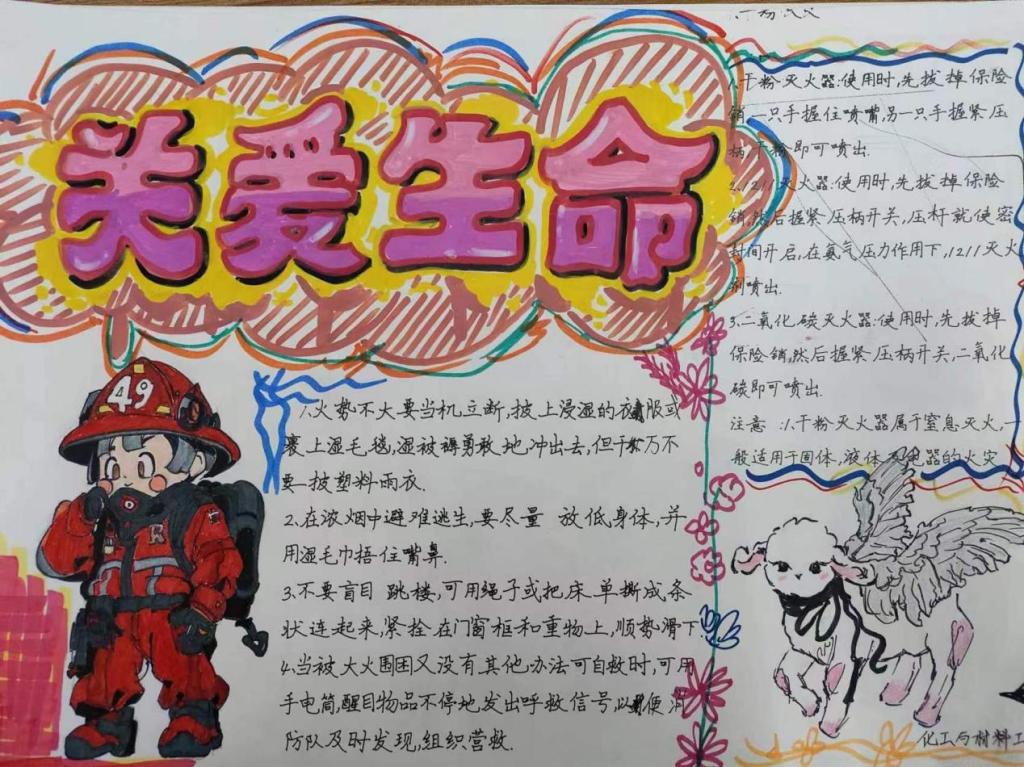 关爱生命
49
R
1.火势不大要当机立断,披上浸湿的衣服或
裹上湿毛毯,湿被褥勇敢地冲出去,但千万不
要披塑料雨衣.
2.在浓烟中避难逃生,要尽量 放低身体,并
用湿毛巾捂住嘴鼻.
3.不要盲目 跳楼,可用绳子或把床 单撕成条
状连起来,紧拴在门窗框和重物上,顺势滑下
4.当被大火围困又没有其他办法可自救时,可用
手电筒,醒目物品不停地发出呼救信号,以便消
防队及时发现,组织营救.
1.干粉灭火器:使用时,先拔掉保险
销,一只手握住喷嘴,另一只手握紧压
柄,干粉即可喷出.
2.1211灭火器:使用时,先拔掉保险
销,然后握紧压柄开关,压杆就使密
封间开启,在氨气压力作用下,1211灭火
剂喷出.
3.二氧化碳灭火器:使用时,先拔掉
保险销,然后握紧压柄开关,二氧化
碳即可喷出.
注意:1.干粉灭火器属于窒息灭火,一
般适用于固体,液体及电器的火灾
化工与材料工